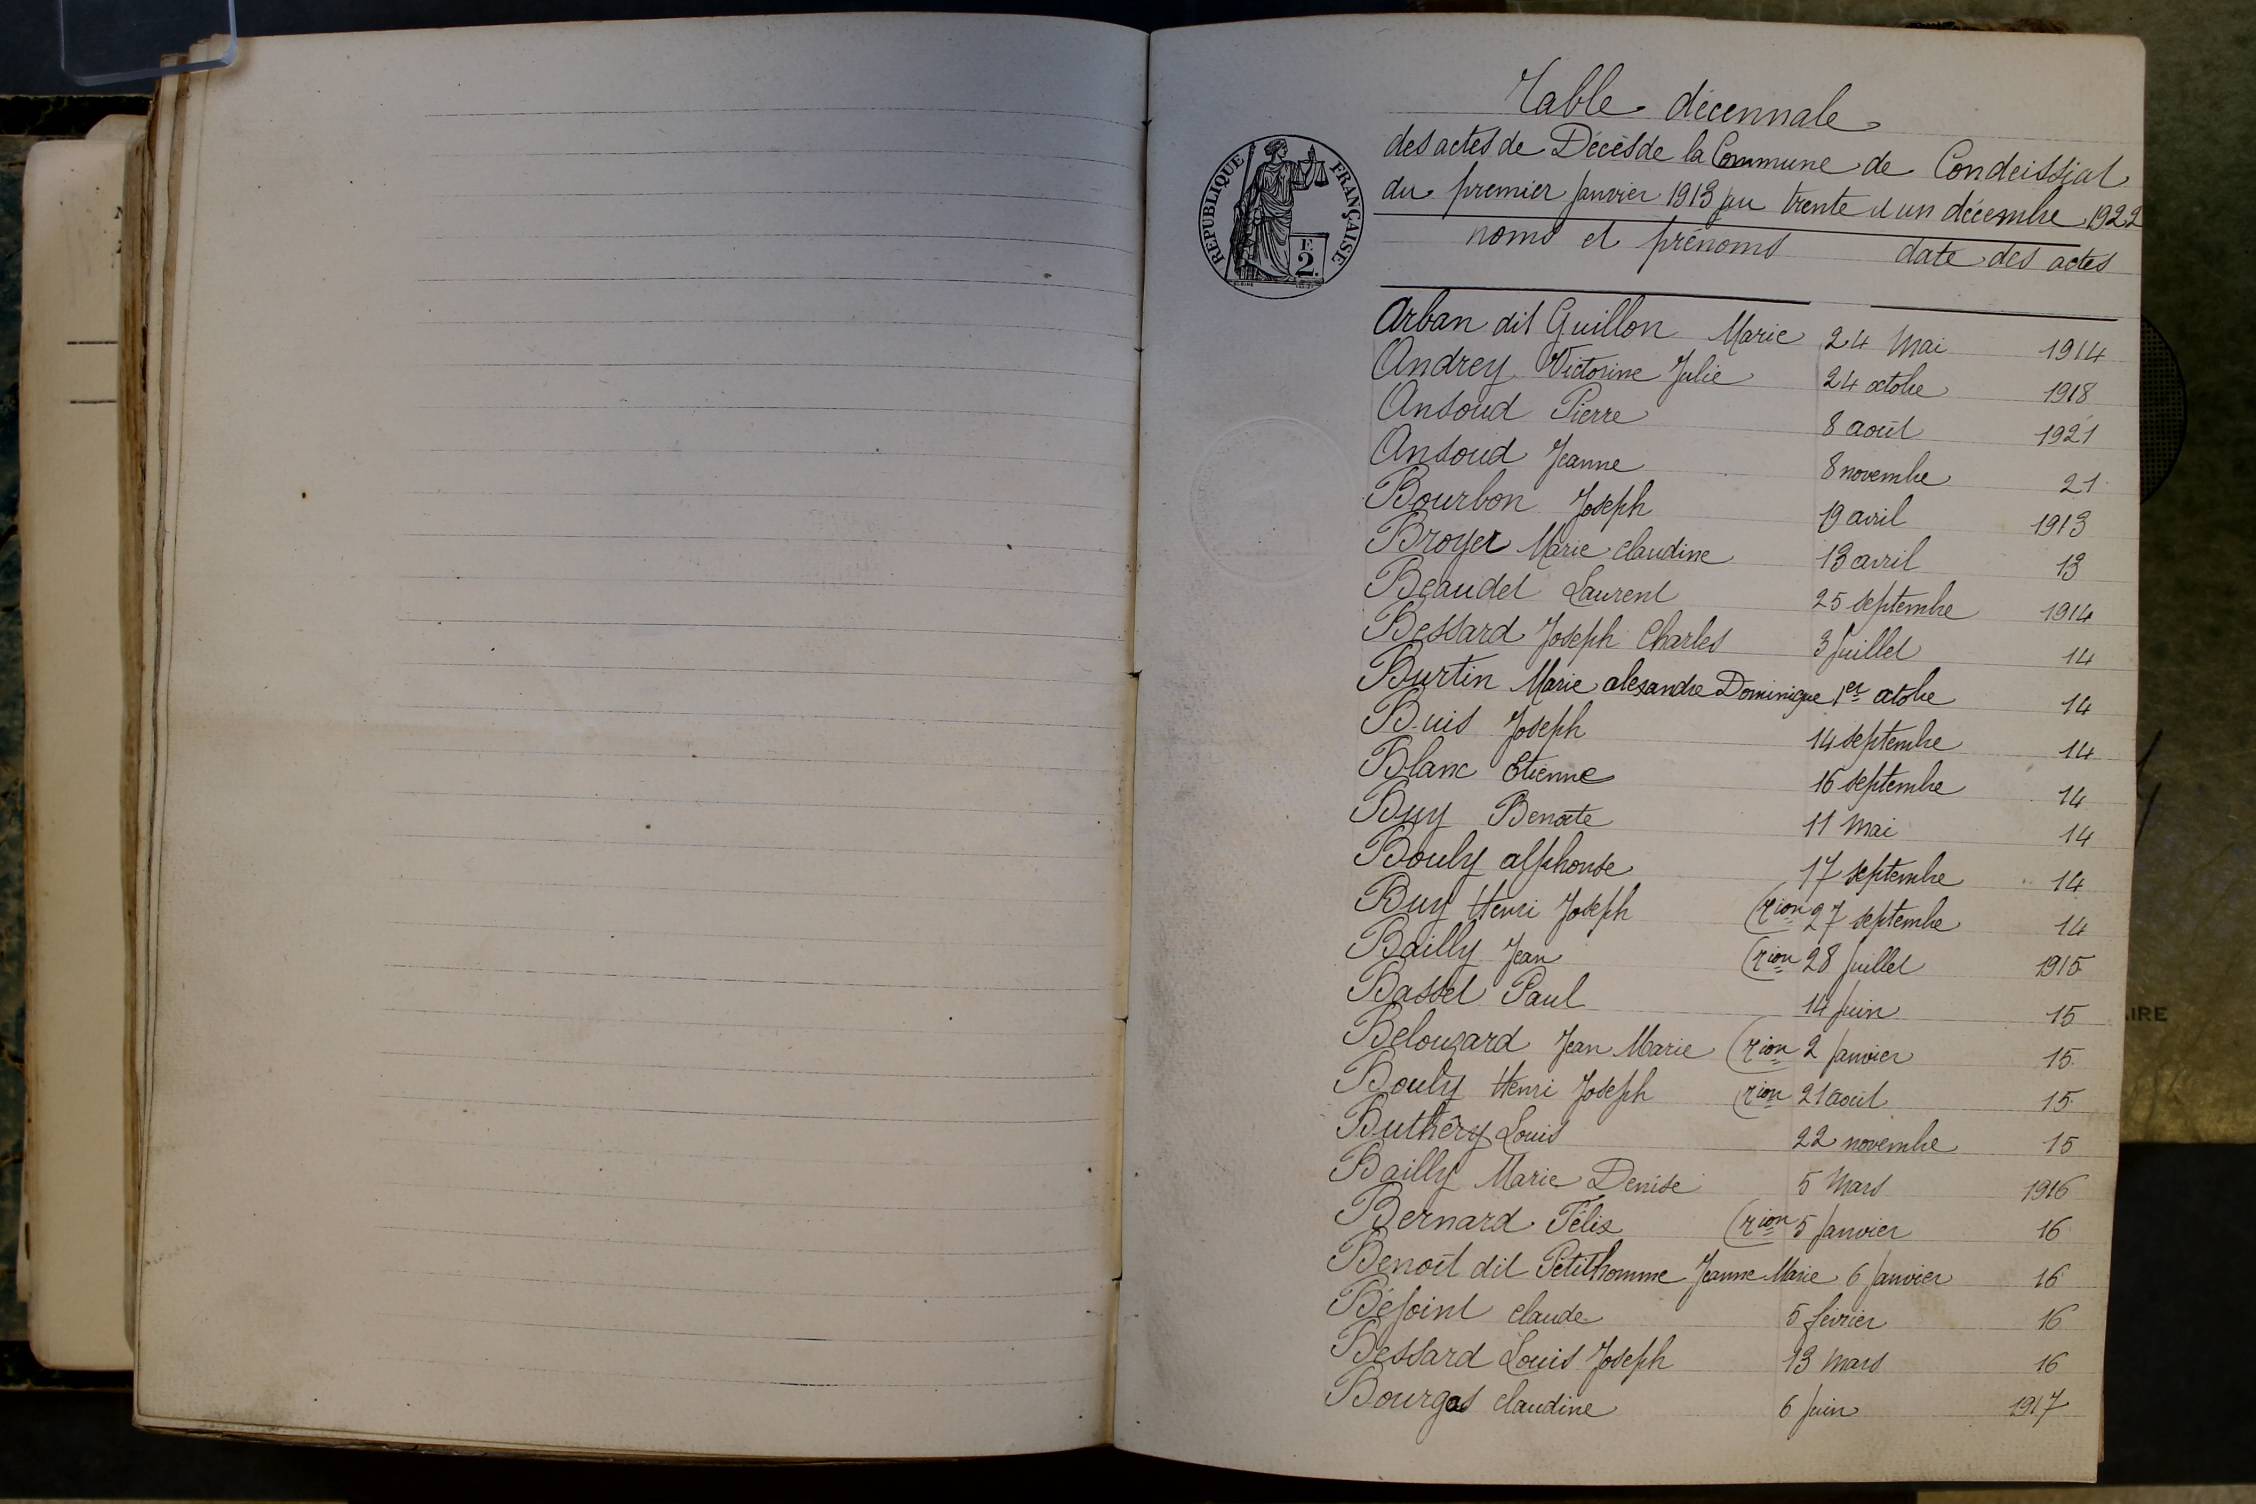 Table décennale
des actes de Décès de la Commune de Condeissiat
du premier janvier 1913 au trente et un décembre 1922
RÉPUBLIQUE FRANÇAISE
F.
2.
noms et prénoms date des actes
Arban dit Guillon Marie 24 Mai 1914
Andrey Victorine Julie 24 octobre 1918
Ansoud Pierre 8 août 1921
Ansoud Jeanne 8 novembre 21
Bourbon Joseph 19 avril 1913
Broyer Marie Claudine 13 avril 13
Beaudet Laurent 25 septembre 1914
Bessard Joseph Charles 3 juillet 14
Burtin Marie alexandre Dominique 1er octobre 14
Buis Joseph 14 septembre 14
Blanc Etienne 16 septembre 14
Buy Benoîte 11 Mai 14
Bouly alphonse 17 septembre 14
Buy Henri Joseph (rion 27 septembre 14
Bailly Jean (rion 28 juillet 1915
Basset Paul 14 juin 15
Belouzard Jean Marie (rion 2 janvier 15
Bouly Henri Joseph (rion 21 août 15
Buthéry Louis 22 novembre 15
Bailly Marie Denise 5 Mars 1916
Bernard Félix (rion 5 janvier 16
Benoît dit Petithomme Jeanne Marie 6 janvier 16
Béjoint Claude 5 février 16
Bessard Louis Joseph 13 Mars 16
Bourgas Claudine 6 juin 1917
AIRE